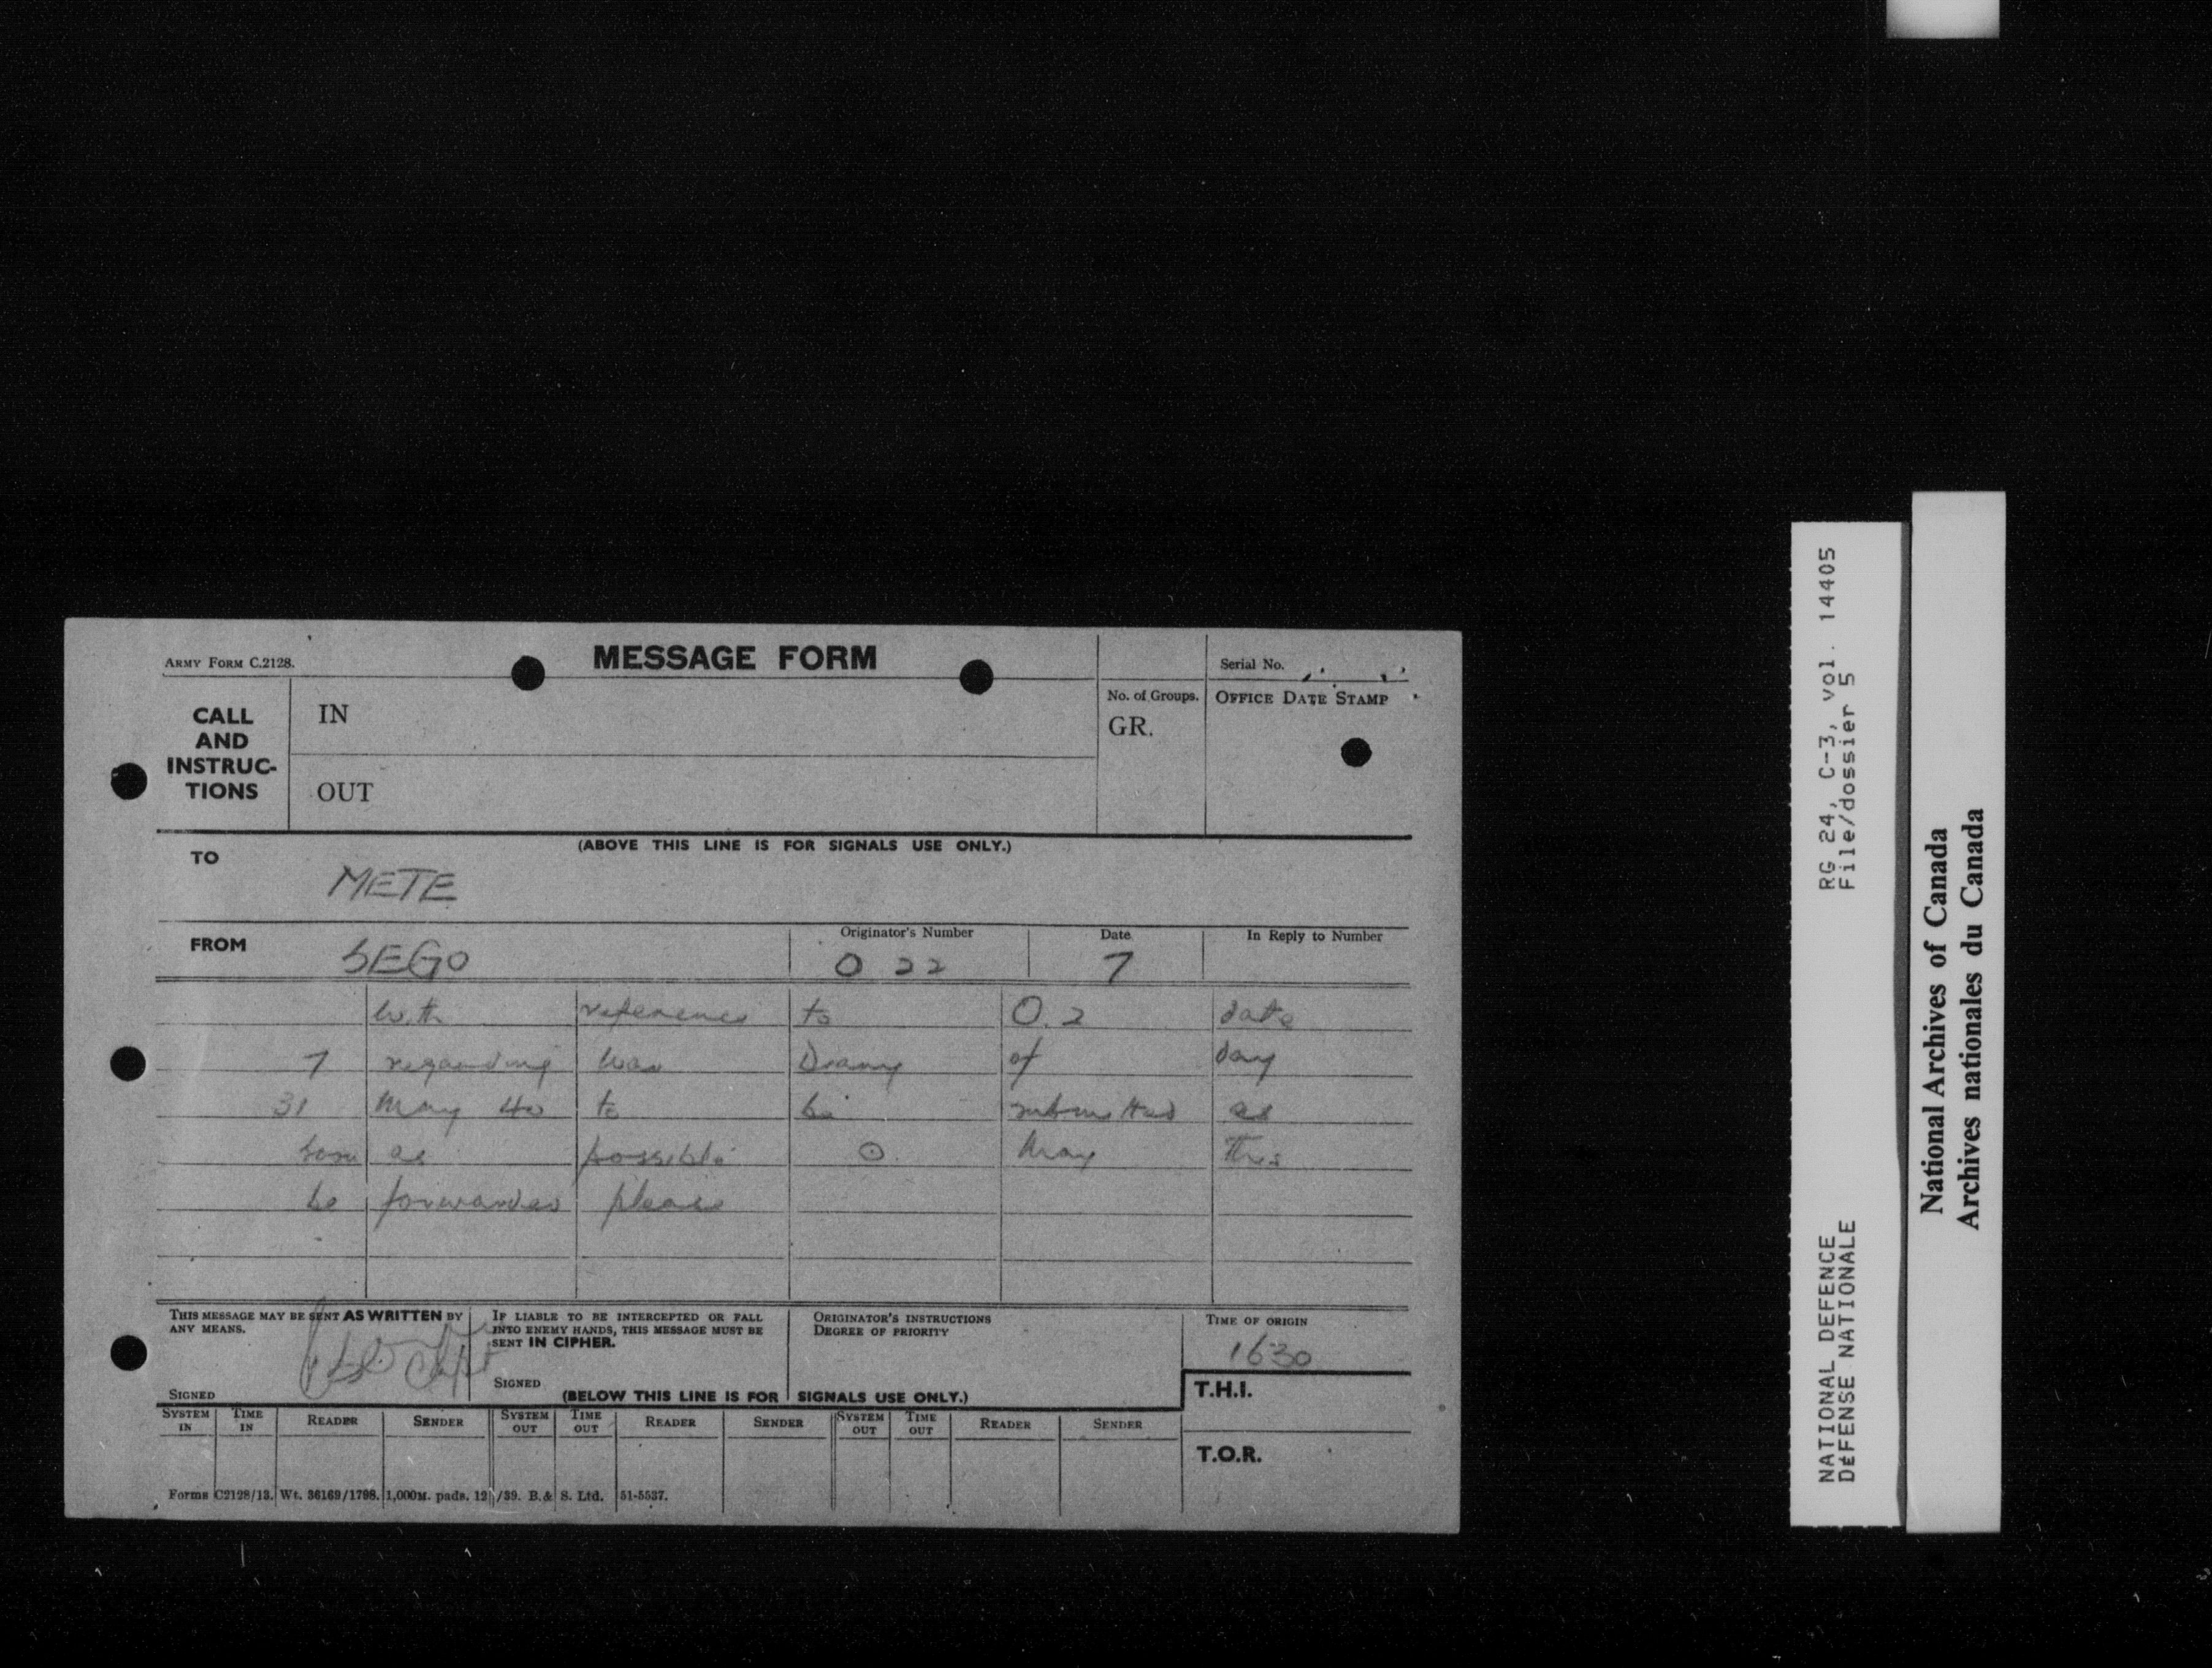 ARMY FORM C.2128.
MESSAGE FORM
Serial No.
CALL AND INSTRUC-TIONS
IN
OUT
No. of Groups.
GR.
OFFICE DATE STAMP
(ABOVE THIS LINE IS FOR SIGNALS USE ONLY.)
TO
METE
FROM
SEGO
Originator's Number
O 22
Date
7
In Reply to Number
With reference to O.2 date
7 regarding War Diary of day
31 May 40 to be submitted as
soon as possible ⊙ May this
be forwarded please
THIS MESSAGE MAY BE SENT AS WRITTEN BY
ANY MEANS.
SIGNED
Capt
IF LIABLE TO BE INTERCEPTED OR FALL
INTO ENEMY HANDS, THIS MESSAGE MUST BE
SENT IN CIPHER.
SIGNED
ORIGINATOR'S INSTRUCTIONS
DEGREE OF PRIORITY
TIME OF ORIGIN
1630
(BELOW THIS LINE IS FOR SIGNALS USE ONLY.)
T.H.I.
T.O.R.
SYSTEM IN TIME IN READER SENDER SYSTEM OUT TIME OUT READER SENDER SYSTEM OUT TIME OUT READER SENDER
Forms C2128/13. Wt. 36169/1798. 1,000M. pads. 12/39. B. & S. Ltd. 51-5537.
NATIONAL DEFENCE RG 24, C-3, vol. 14405
DÉFENSE NATIONALE File/dossier 5
National Archives of Canada
Archives nationales du Canada